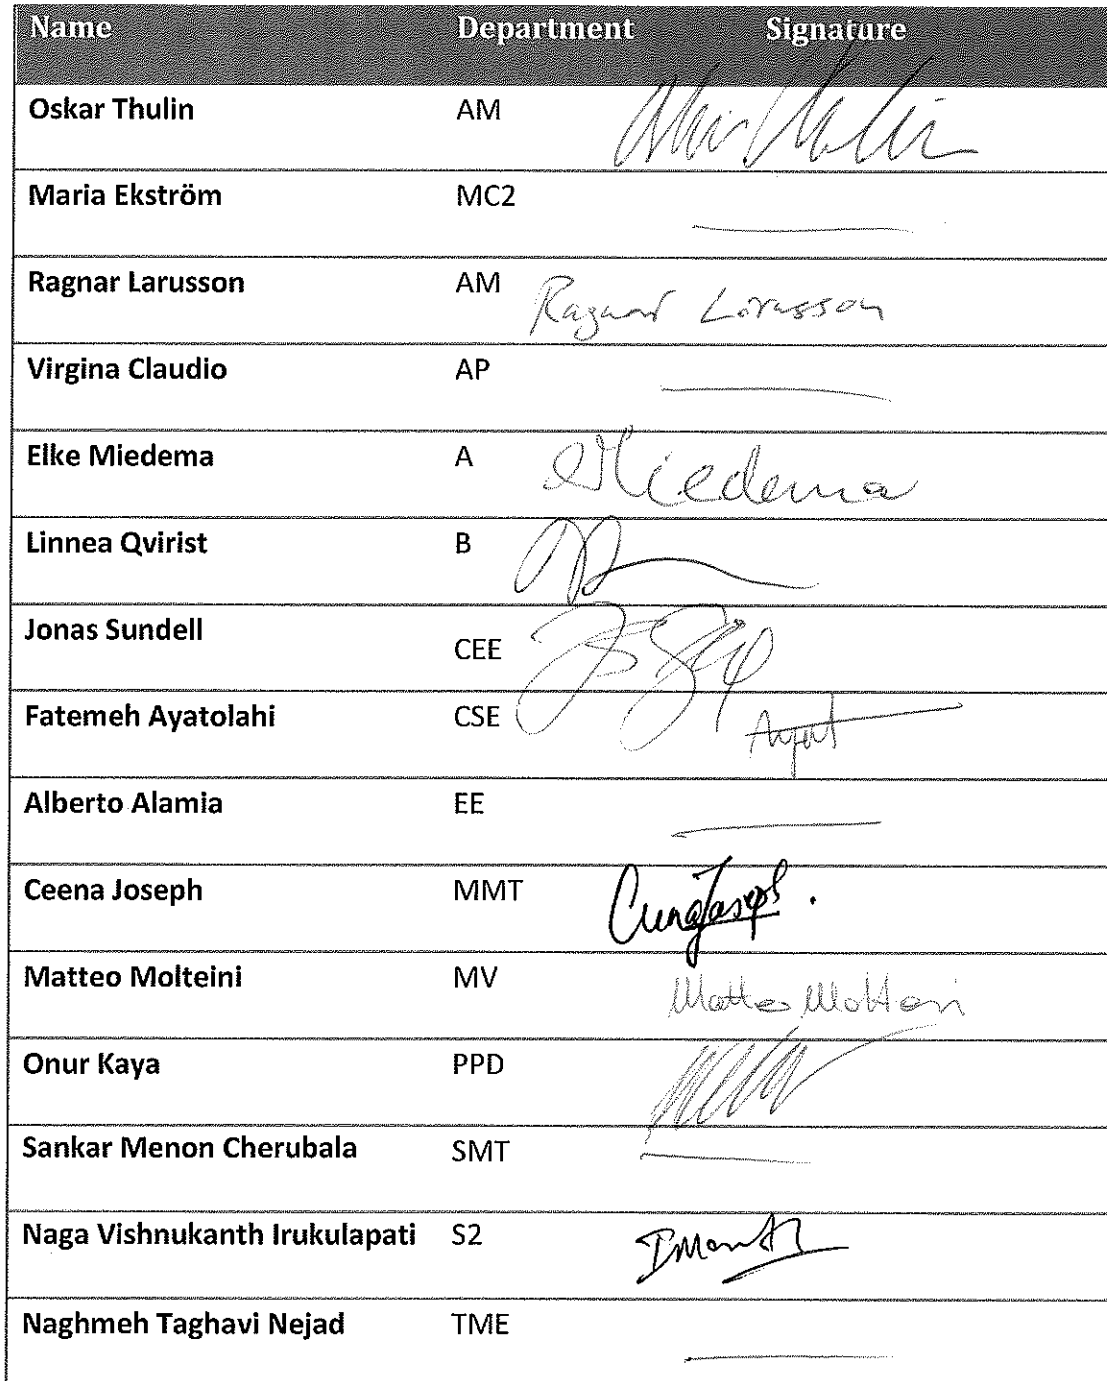 Name Department Signature
Oskar Thulin AM
Maria Ekström MC2
Ragnar Larusson AM Ragnar Larusson
Virgina Claudio AP
Elke Miedema A EMiedema
Linnea Qvirist B
Jonas Sundell CEE
Fatemeh Ayatolahi CSE
Alberto Alamia EE
Ceena Joseph MMT Ceena Joseph.
Matteo Molteini MV Matteo Molteni
Onur Kaya PPD
Sankar Menon Cherubala SMT
Naga Vishnukanth Irukulapati S2
Naghmeh Taghavi Nejad TME